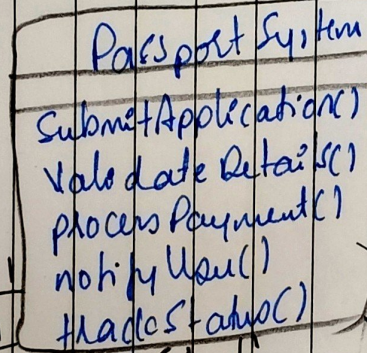 Passport System
SubmitApplication()
ValidateDetails()
processPayment()
notifyUser()
trackStatus()